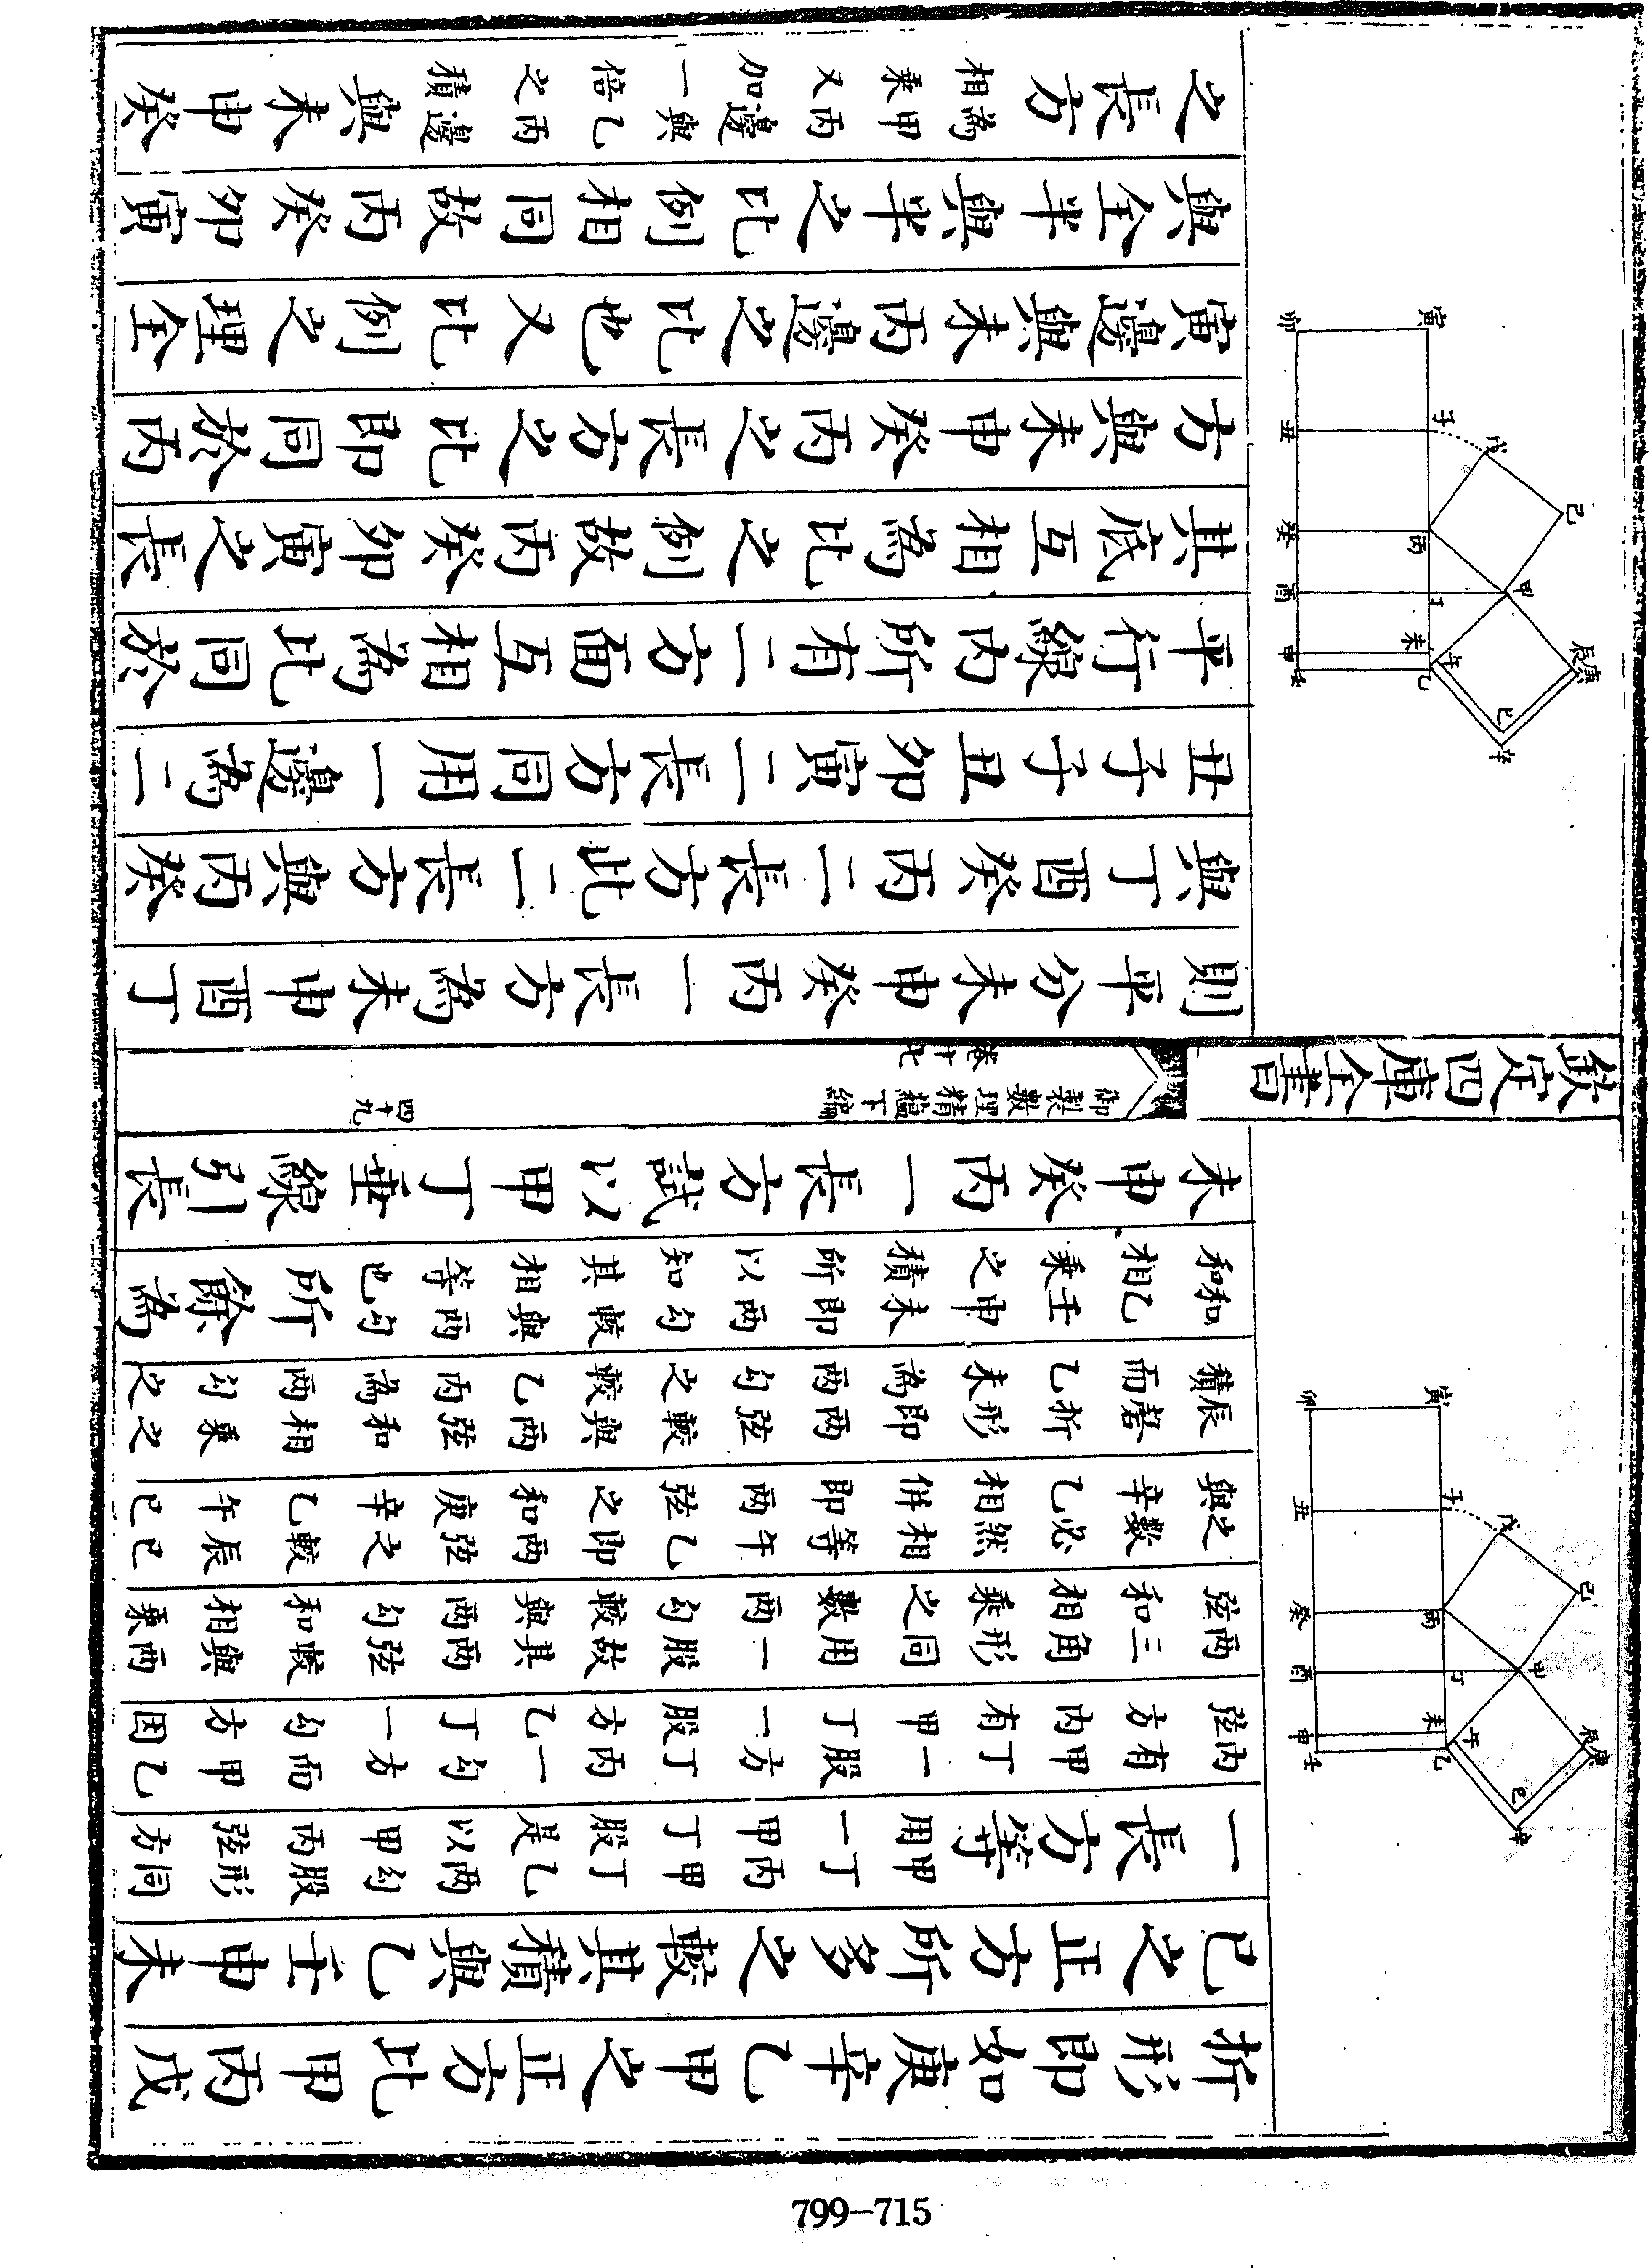 折形即如庚辛乙甲之正方比甲丙戊
己之正方所多之較其積與乙壬申未
一長方等甲丁丙甲丁乙兩勾股形同
用一甲丁股是以甲丙弦方
內有甲丁一股方丁丙一勾方而甲乙
弦方內有甲丁一股方乙丁一勾方因
兩三角形同用一股故其兩弦較與兩
弦和相乘之數兩勾較與兩勾和相乘
之數必然相等午乙即兩弦之較辰巳
與辛乙相併即兩弦之和庚辛乙午巳
辰磬折形即兩弦較與兩弦和相乘之
積而乙未為兩勾之較乙丙為兩勾之
和乙壬申未即兩勾較與兩勾
和相乘之積所以知其相等也
所餘為
未申癸丙一長方試以甲丁垂線引長
寅
卯
子
丑
戊
己
丙
癸
甲
丁
酉
未
申
乙
壬
午
辰
庚
巳
辛
欽定四庫全書
御製數理精蘊下編
卷十七
四十九
則平分未申癸丙一長方為未申酉丁
與丁酉癸丙二長方此二長方與丙癸
丑子子丑卯寅二長方同用一邊為二
平行線內所有二方面互相為比同於
其底互相為比之例故丙癸卯寅之長
方與未申癸丙之長方之比即同於丙
寅邊與未丙邊之比也又比例之理全
與全半與半之比例相同故丙癸卯寅
之長方為甲丙邊與乙丙邊
相乘又加一倍之積
與未申癸
寅
卯
子
丑
戊
己
丙
癸
甲
丁
酉
未
申
乙
壬
午
辰
庚
巳
辛
799-715